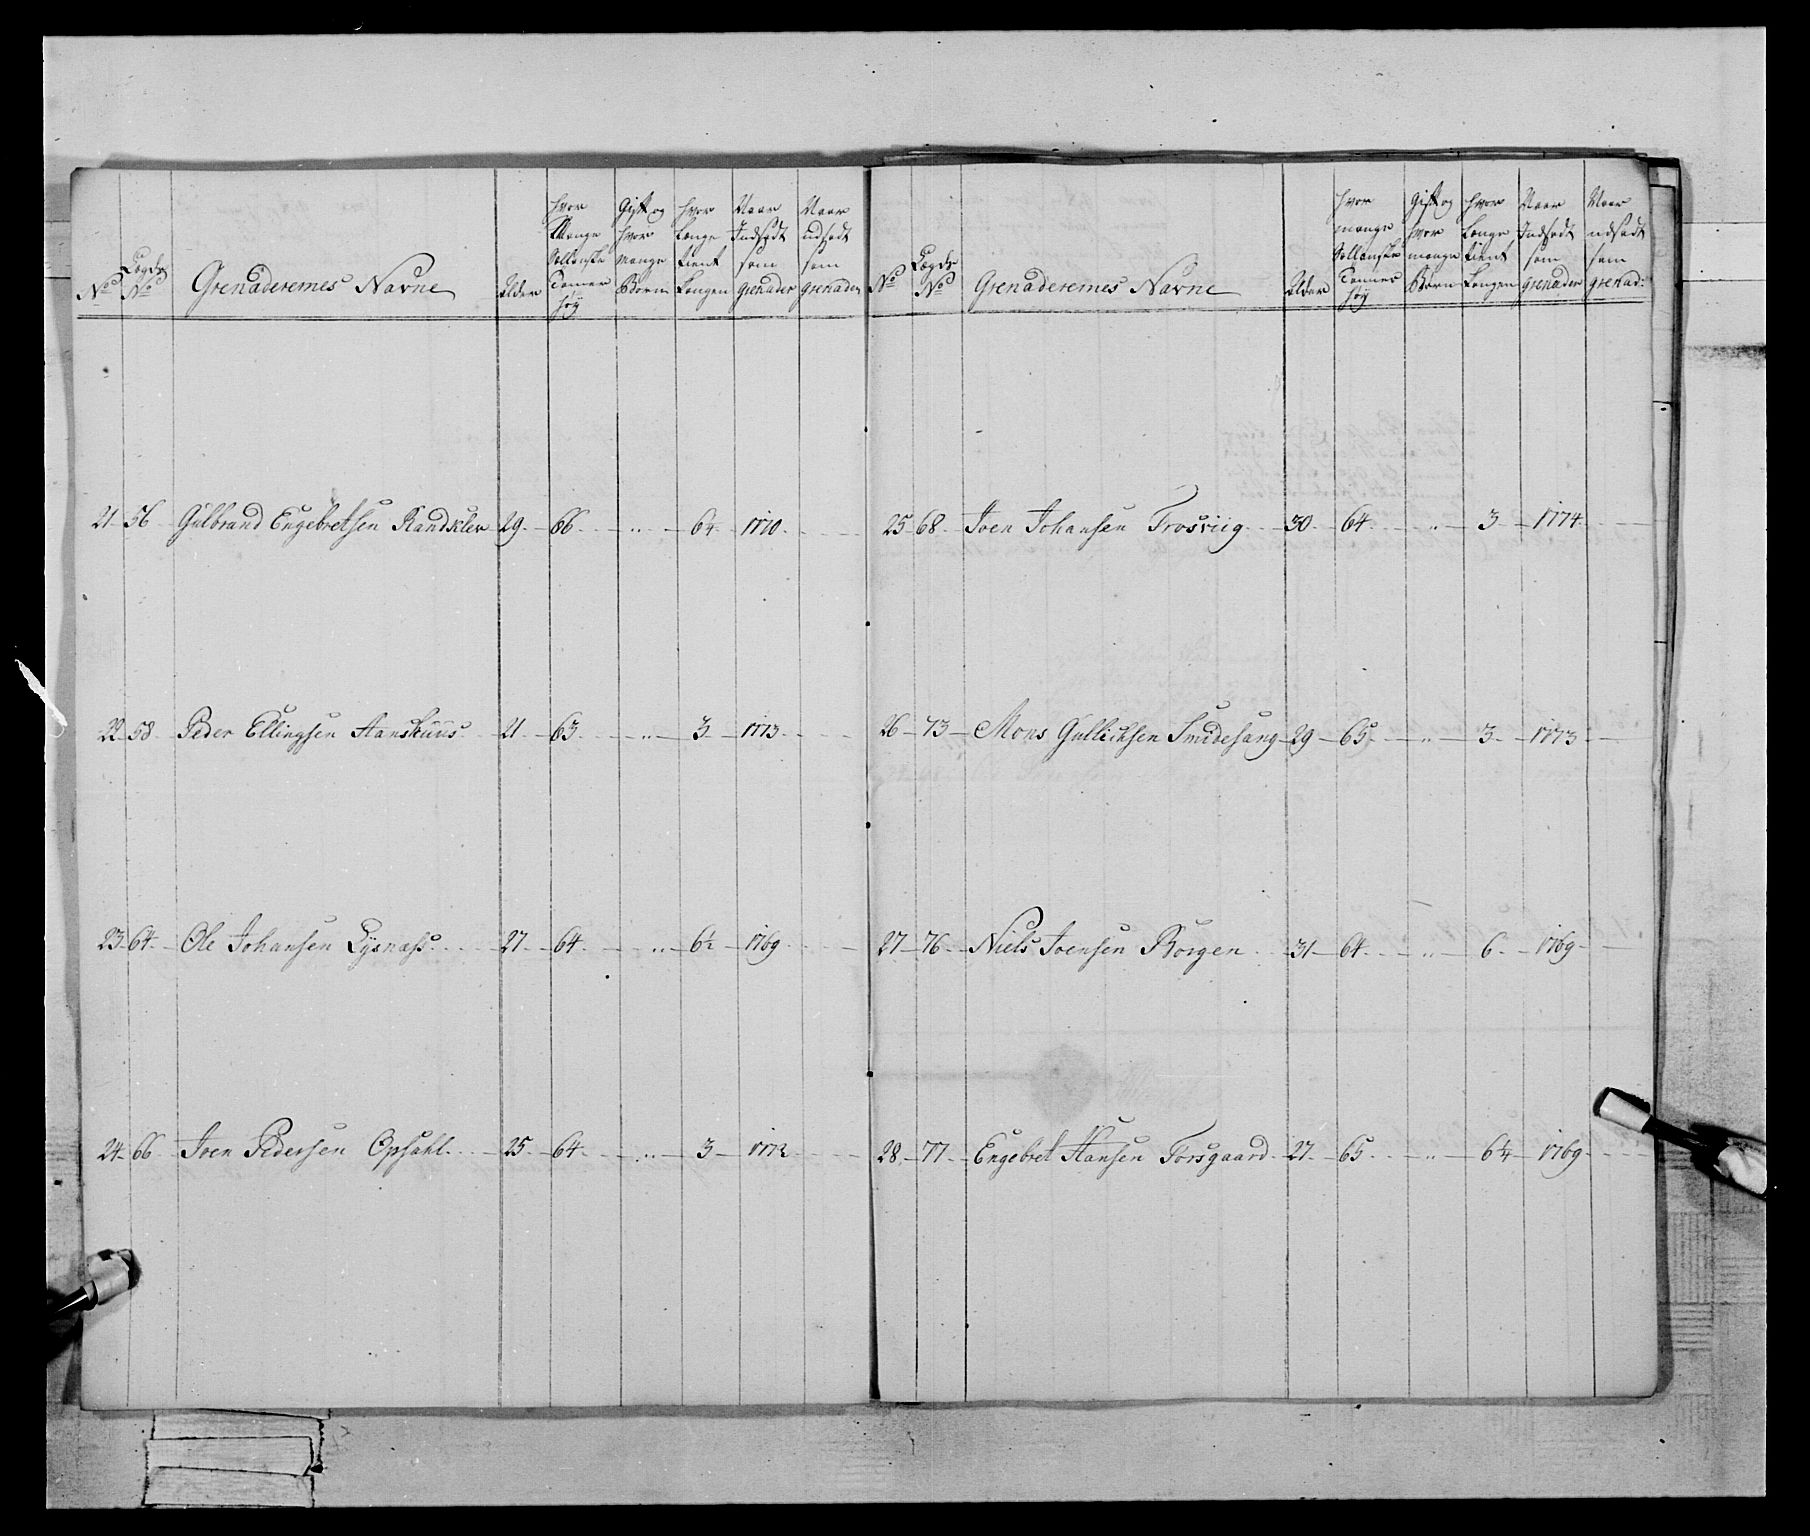 No Lægds No Grenaderernes Navne Alder hvor Mange Sællanske Tomer høy Gift og hvor Mange Børn hvor Længe tient Kongen Naar Indsadt som grenader Naar udsadt som grenader
21 56 Gulbrand Engebretsen Randklev 29 66 ,, 6¼ 1770
22 58 Peder Ellingsen Aanshuus 21 63 ,, 3 1773
23 64 Ole Johansen Lysnæss 27 64 ,, 6½ 1769
24 66 Joen Pedersen Opsahl 25 64 ,, 3 1772
No Lægds No Grenaderernes Navne Alder hvor mange Sællanske Tomer høy Gift og hvor mange Børn hvor Længe tient Kongen Naar Indsadt som grenader Naar udsadt som grenad:
25 68 Joen Johansen Trosviig 30 64 ,, 3 1774
26 73 Mons Gullichsen Smidesang 29 65 ,, 3 1773
27 76 Niels Joensen Borgen 31 64 ,, 6 1769
28 77 Engebret Hansen Torsgaard 27 65 ,, 6¼ 1769